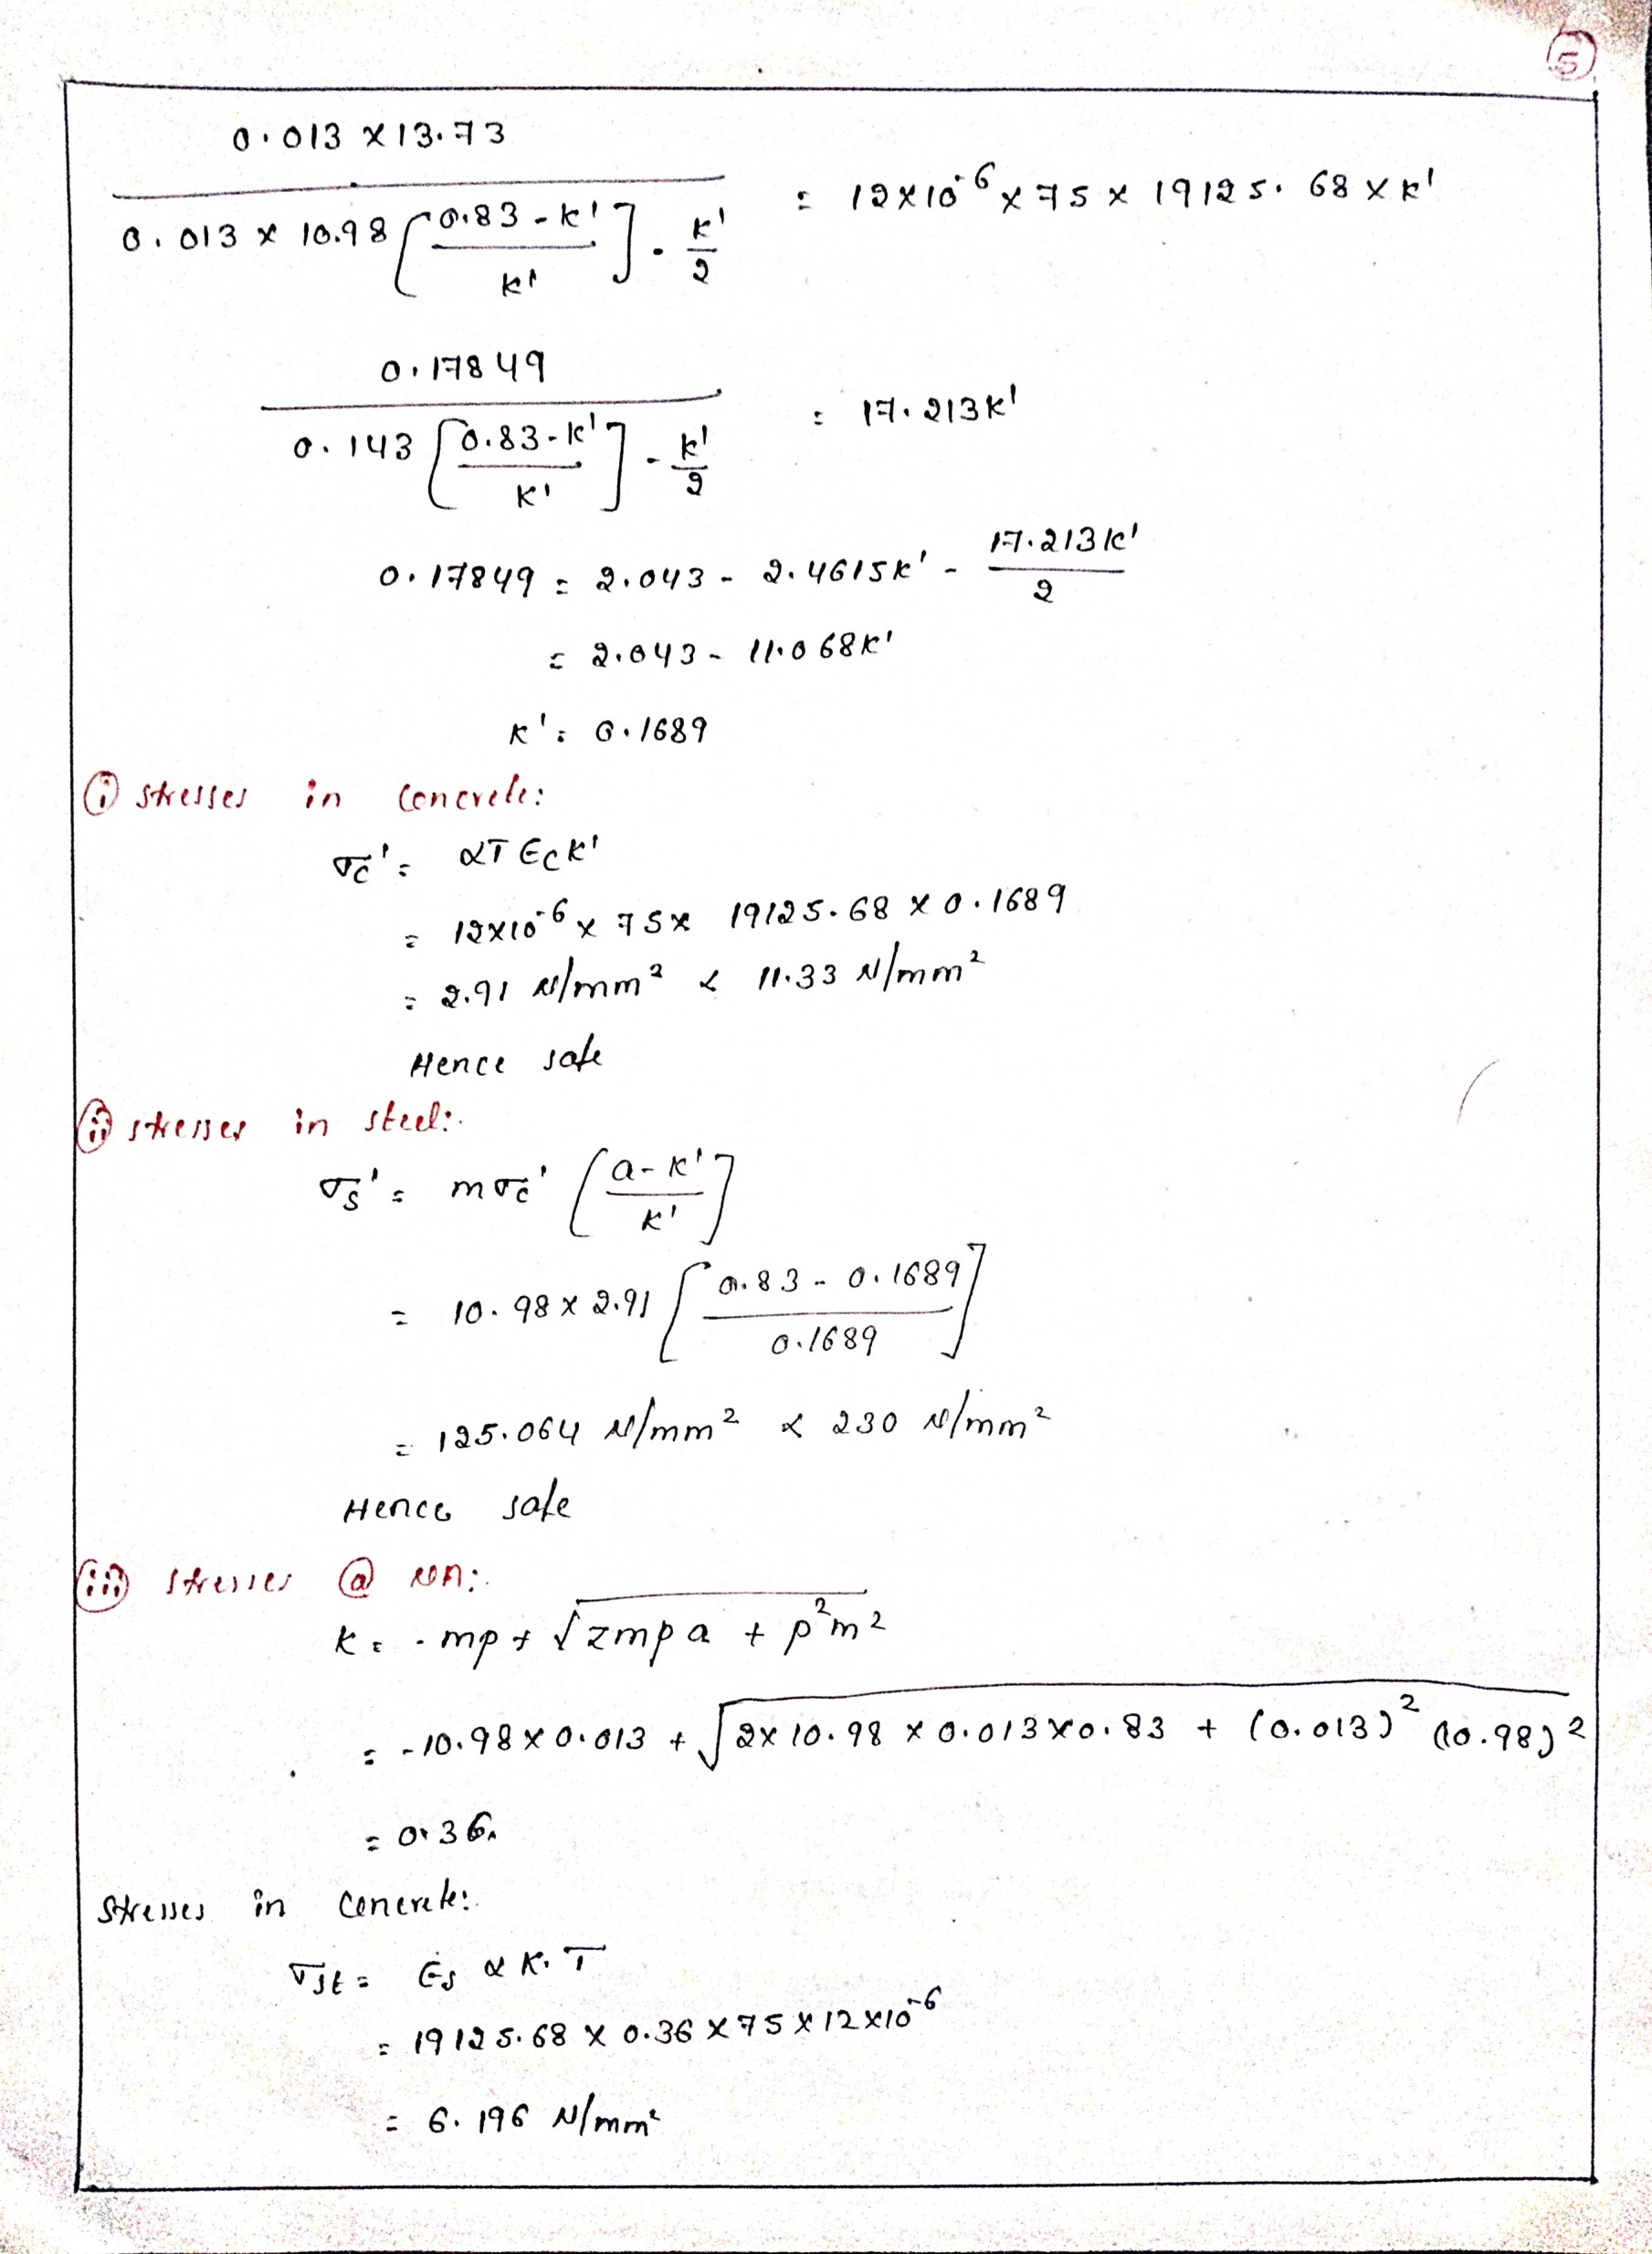 5
0.013 x 13.73 / 0.013 x 10.98 [0.83 - k' / k'] - k'/2 = 12x10^-6 x 75 x 19125.68 x k'
0.17849 / 0.143 [0.83 - k' / k'] - k'/2 = 17.213k'
0.17849 = 2.043 - 2.4615k' - 17.213k'/2
= 2.043 - 11.068k'
k' = 0.1689
(i) stresses in concrete:
σc' = αT Ec k'
= 12x10^-6 x 75 x 19125.68 x 0.1689
= 2.91 N/mm² < 11.33 N/mm²
Hence safe
(ii) stresses in steel:
σs' = mσc' [a - k' / k']
= 10.98 x 2.91 [0.83 - 0.1689 / 0.1689]
= 125.064 N/mm² < 230 N/mm²
Hence safe
(iii) stresses @ NA:
K = -mp + √2mpa + p²m²
= -10.98 x 0.013 + √2x10.98 x 0.013 x 0.83 + (0.013)² (10.98)²
= 0.36
Stresses in concrete:
σst = Es α K. T
= 19125.68 x 0.36 x 75 x 12x10^-6
= 6.196 N/mm²